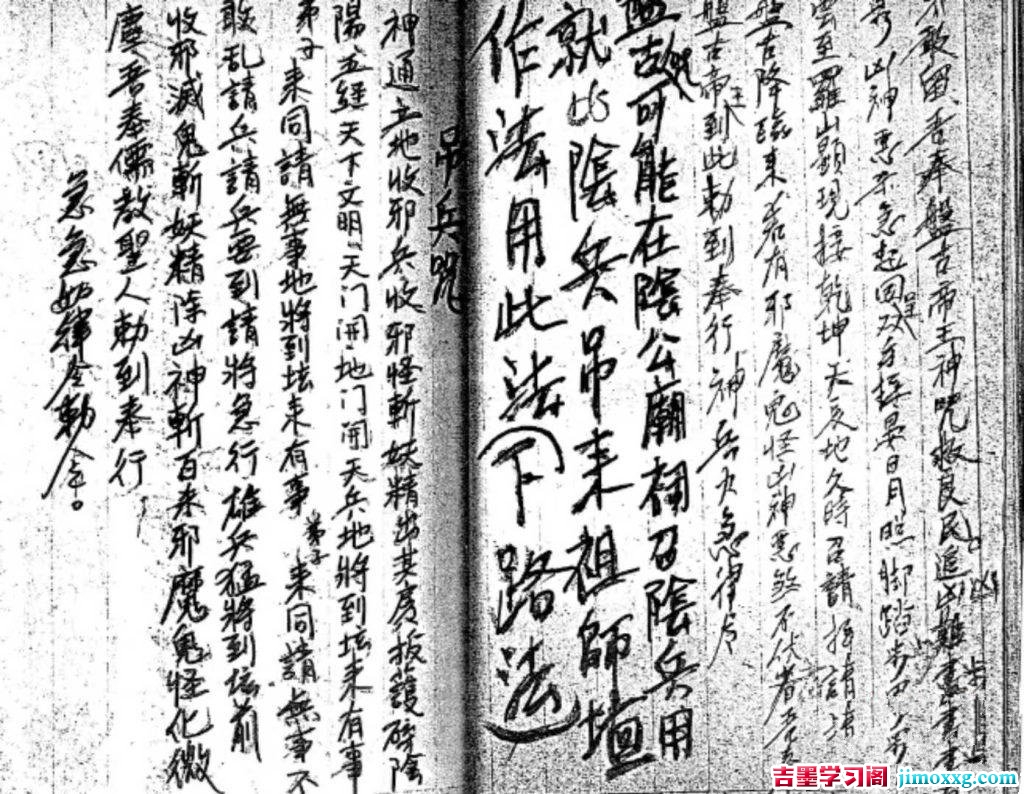 不敢留吾奉盤古帝王神咒救良民追凶難
凶神惡
急起回双手接晏日月照脚踏步
雲至羅山顯現接乾坤天反地久時召請
盤古降臨来若有邪魔鬼怪凶神惡煞不伏者
盤古帝王到此勅到奉行神兵火急律令
盤古咒可能在陰公廟裡召陰兵用
就比陰兵吊来祖師壇
作法用此法(下路法)
吊兵咒
神通土地收邪兵收邪怪斬妖精出
陽五經天下文明天门開地门開天兵地將到坛来有事
弟子来同請無事地將到坛来有事弟子来同請無事不
敢乱請兵請兵要到請將急行雄兵猛將到坛前
收邪滅鬼斬妖精除凶神斬百来邪魔鬼怪化微
塵吾奉儒教聖人勅到奉行
急急如律令勅令。
吉墨学习阁 jimoxxg.com